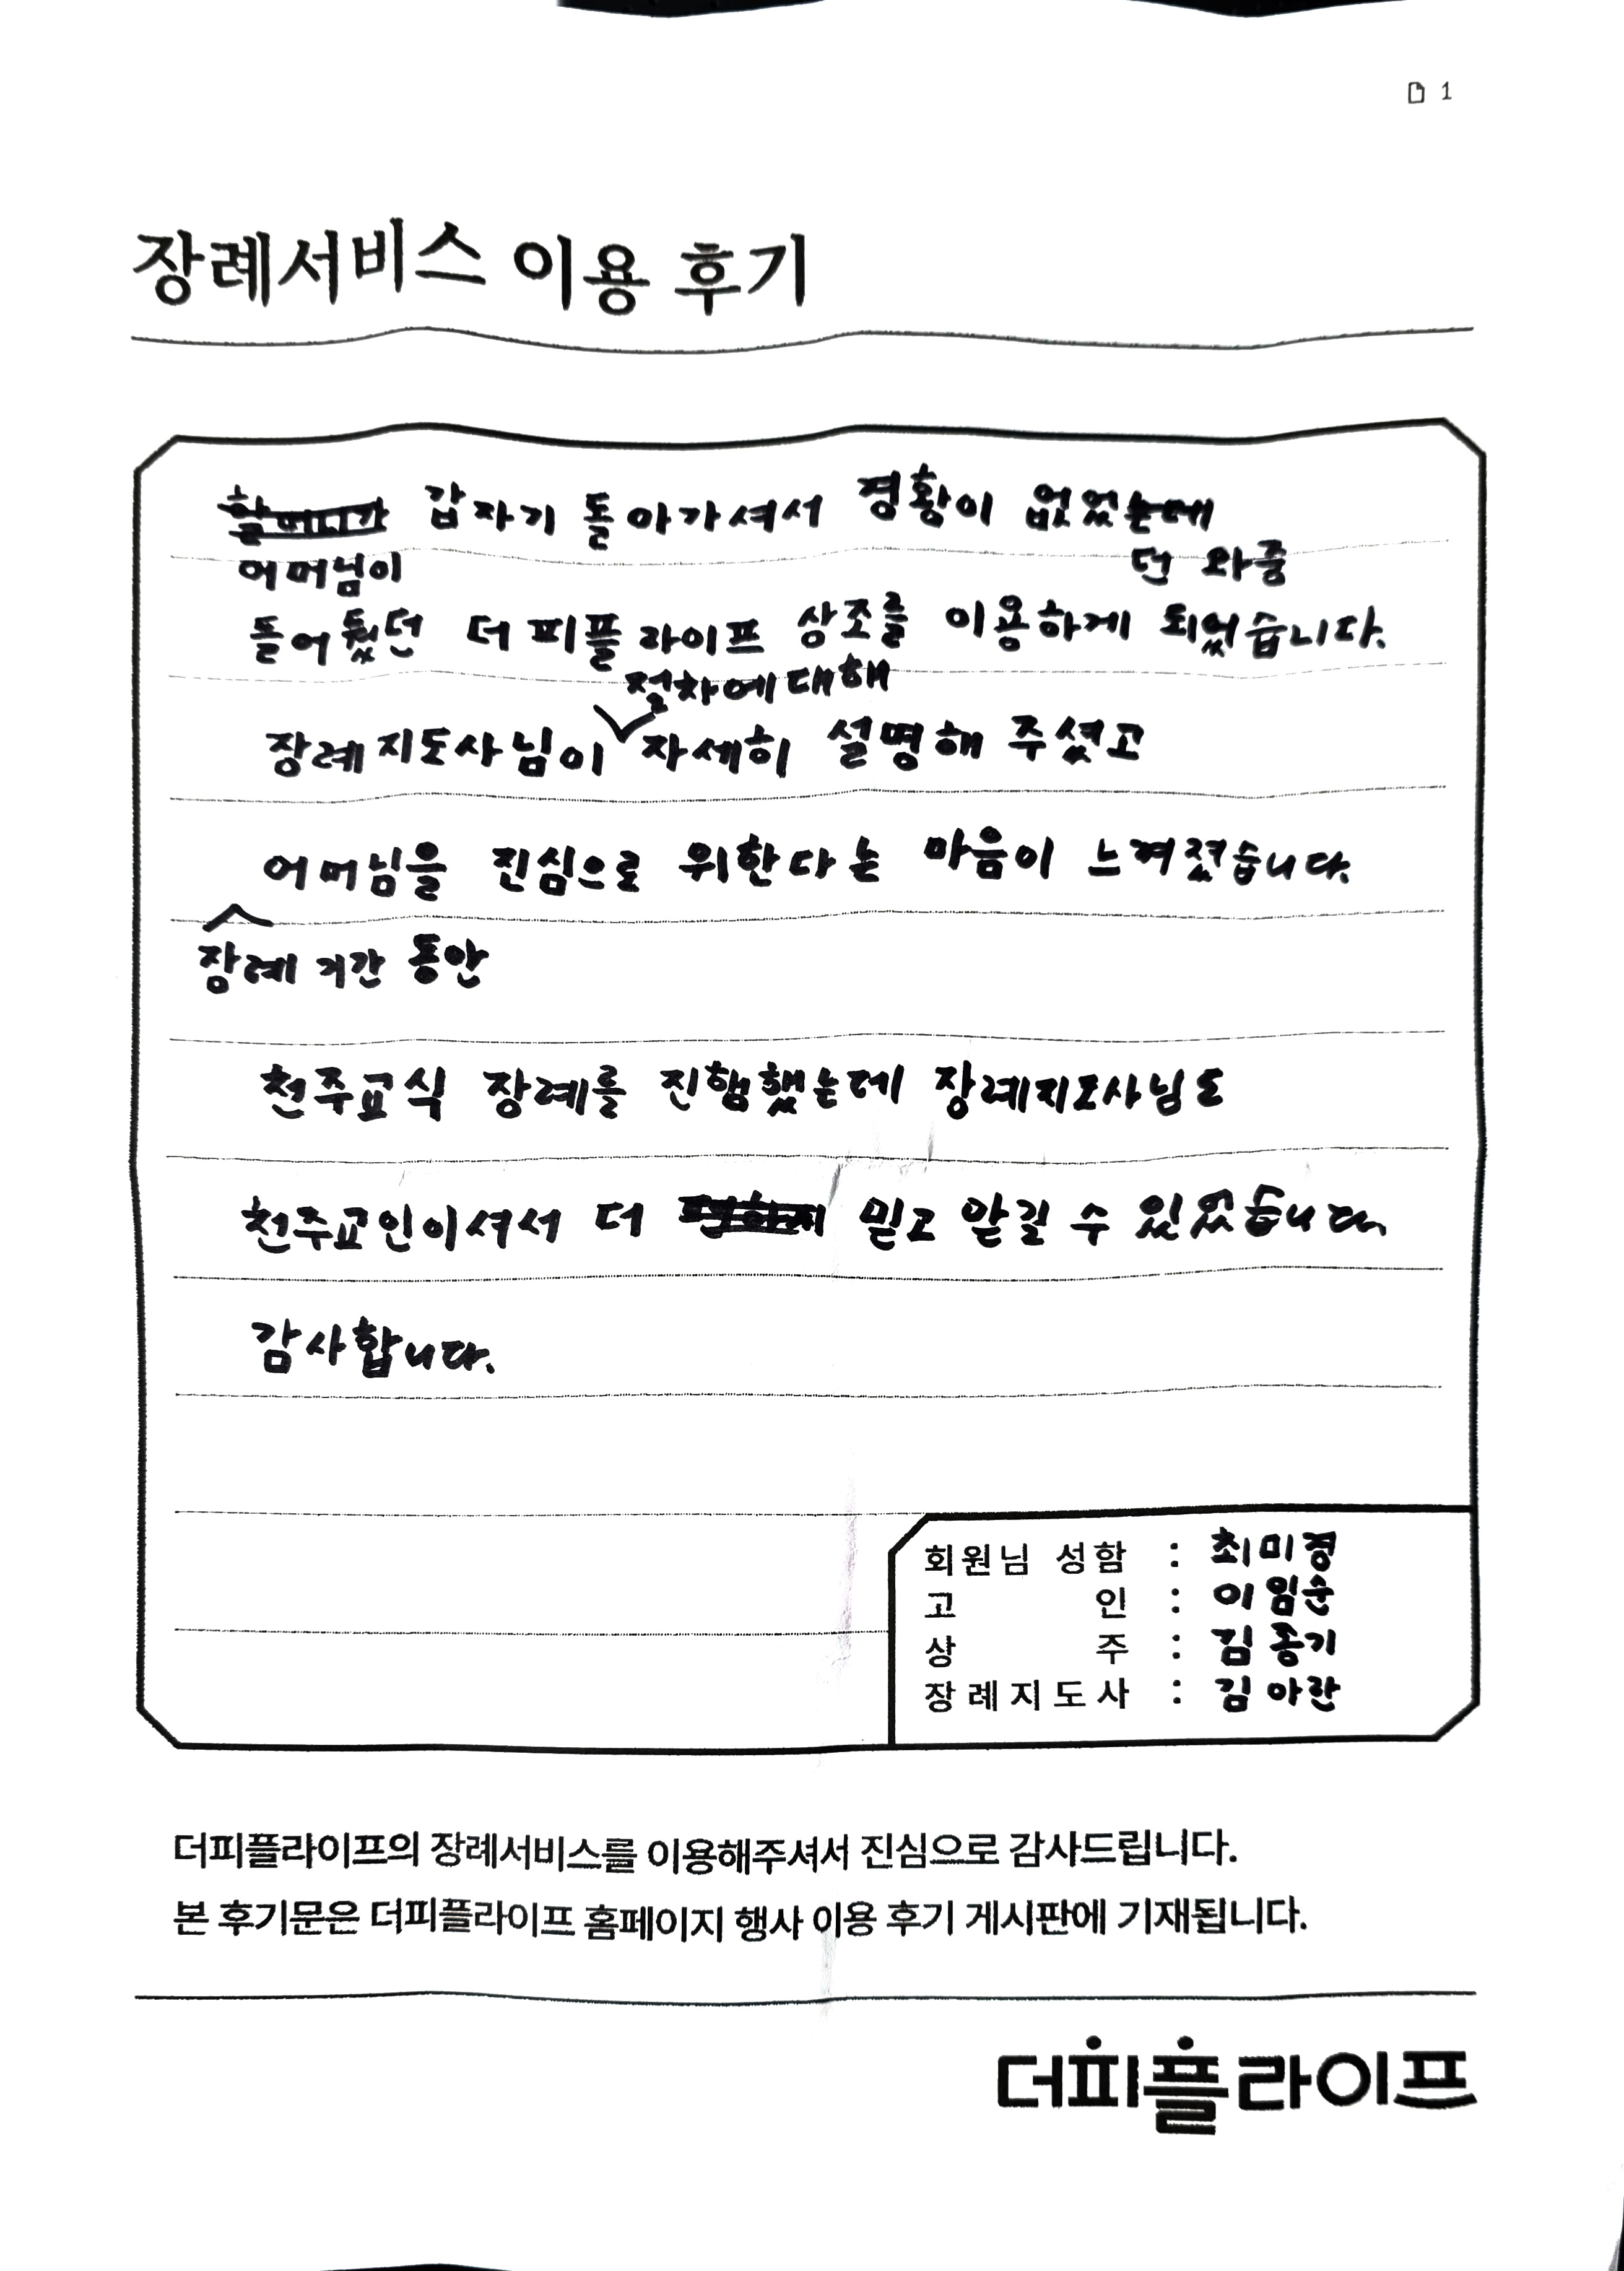 1
장례서비스 이용 후기
할머니가 갑자기 돌아가셔서 경황이 없었는데
어머님이 던 와중
들어뒀던 더피플라이프 상조를 이용하게 되었습니다.
절차에대해
장례지도사님이 자세히 설명해 주셨고
어머님을 진심으로 위한다는 마음이 느껴졌습니다.
장례 기간 동안
천주교식 장례를 진행했는데 장례지도사님도
천주교인이셔서 더 믿고 맡길 수 있었습니다.
감사합니다.
회원님 성함 : 최미경
고 인 : 이임순
상 주 : 김종기
장례지도사 : 김아란
더피플라이프의 장례서비스를 이용해주셔서 진심으로 감사드립니다.
본 후기문은 더피플라이프 홈페이지 행사 이용 후기 게시판에 기재됩니다.
더피플라이프